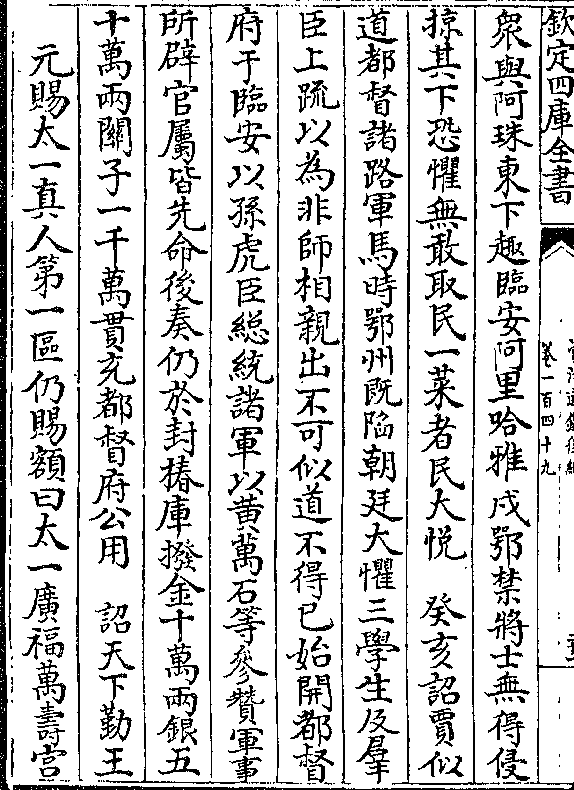 欽定四庫全書
卷一百四十九
衆與阿珠東下趣臨安阿里哈雅戍鄂禁將士無得侵
掠其下恐懼無敢取民一菜者民大悦　癸亥詔賈似
道都督諸路軍馬時鄂州既陷朝廷大懼三學生及羣
臣上疏以為非師相親出不可似道不得已始開都督
府于臨安以孫虎臣總統諸軍以黄萬石等參贊軍事
所辟官屬皆先命後奏仍於封樁庫撥金十萬兩銀五
十萬兩關子一千萬貫充都督府公用　詔天下勤王
元賜太一真人第一區仍賜額曰太一廣福萬壽宫